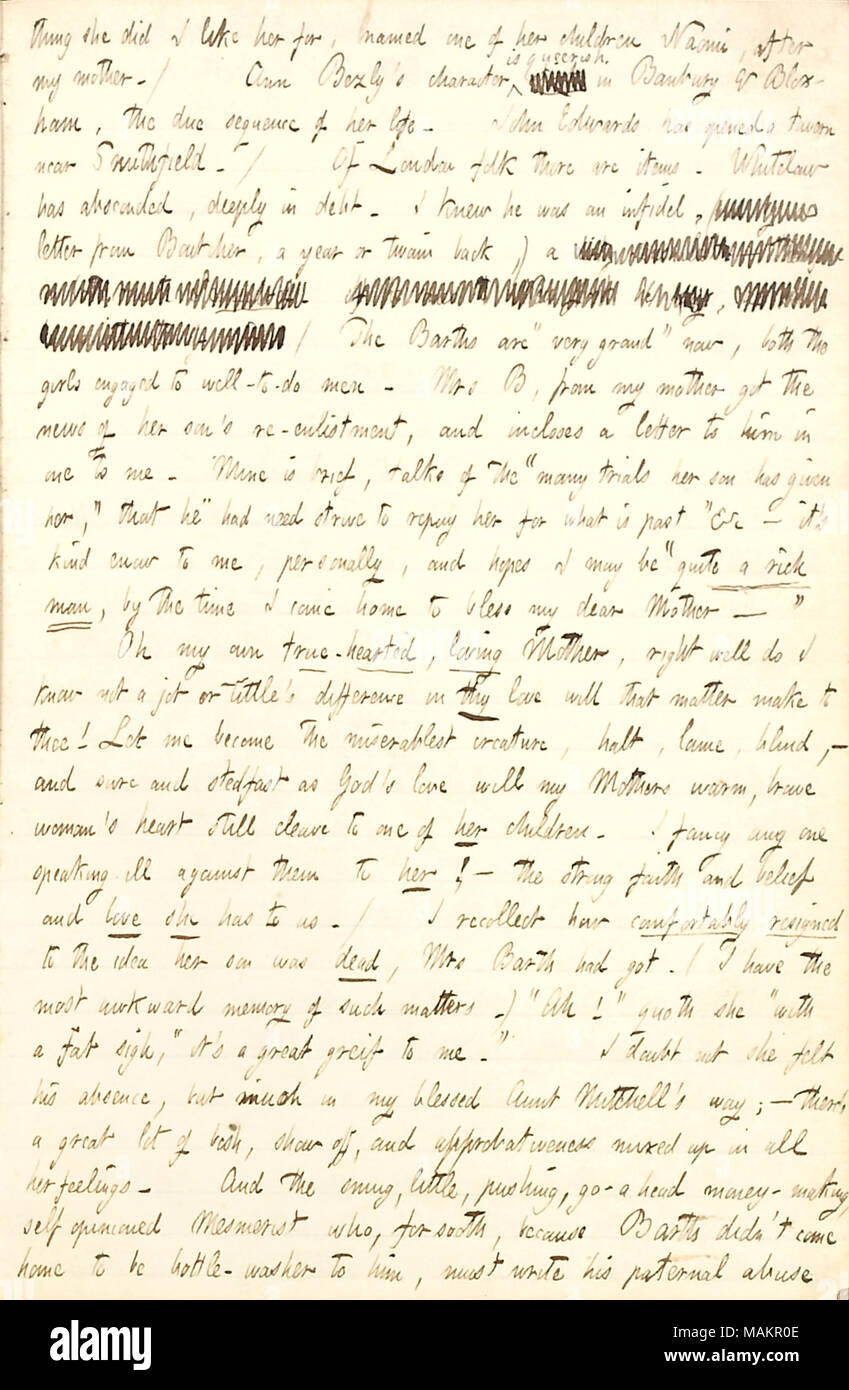 thing she did I like her for, named one of her children Naomi, after
my mother_/ Ann Bezly's character is queerish in Banbury & Blox-
ham, the due sequence of her life_ John Edwards has opened a tavern
near Smithfield_/ Of London folk there are items_ Whitelaw
has absconded, deeply in debt_ I knew he was an infidel,
letter from Boutcher, a year or twain back,) a
/ The Barths are "very grand" now, both the
girls engaged to well-to-do men_ Mrs B, from my mother got the
news of her son's re-enlistment, and incloses a letter to him in
one to me_ Mine is brief, talks of the "many trials her son has given
her," that he "had need strive to repay her for what is past "&c _ it's
kind enow to me, personally, and hopes I may be "quite a rich
man, by the time I come home to bless my dear Mother _"
Oh my own true-hearted, loving Mother, right well do I
know not a jot or tittle's difference in thy love will that matter make to
thee! Let me become the miserablest creature, halt, lame, blind,_
and sure and stedfast as God's love will my Mothers warm, brave
woman's heart still cleave to one of her children_ I fancy any one
speaking ill against them to her!_ the strong faith and belief
and love she has to us_/ I recollect how comfortably resigned
to the idea her son was dead, Mrs Barth had got. (I have the
most awkward memory of such matters_) "Ah!" quoth she "with
a fat sigh, "it's a great greif to me_" I doubt not she felt
his absence, but much in my blessed Aunt Mitchell's way;_ there's
a great lot of bosh, show off, and approbativeness mixed up in all
her feelings_ And the smug, little, pushing, go-a head money-making,
self opinioned Mesmerist who, forsooth, because Barth didn't come
home to be bottle-washer to him, must write his paternal abuse
alamy
Image ID: MAKR0E
www.alamy.com